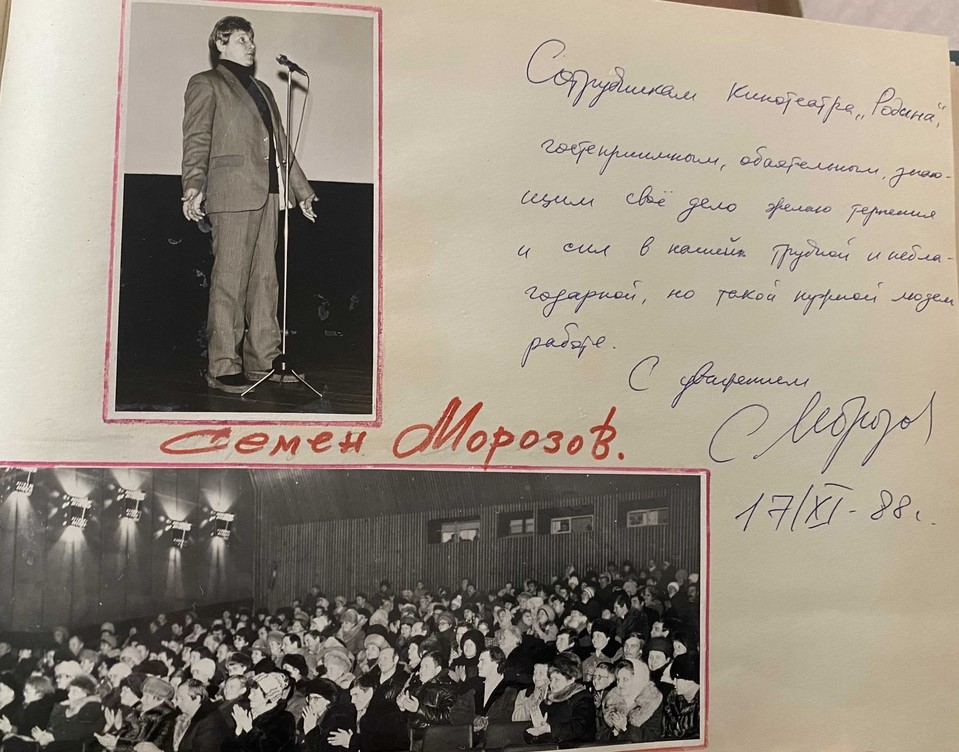 Сотрудникам кинотеатра „Родина",
гостеприимным, обаятельным, знаю-
щим своё дело желаю терпения
и сил в нашей трудной и небла-
годарной, но такой нужной людям
работе.
С уважением
С Морозов
17/XI - 88 г.
Семен Морозов.